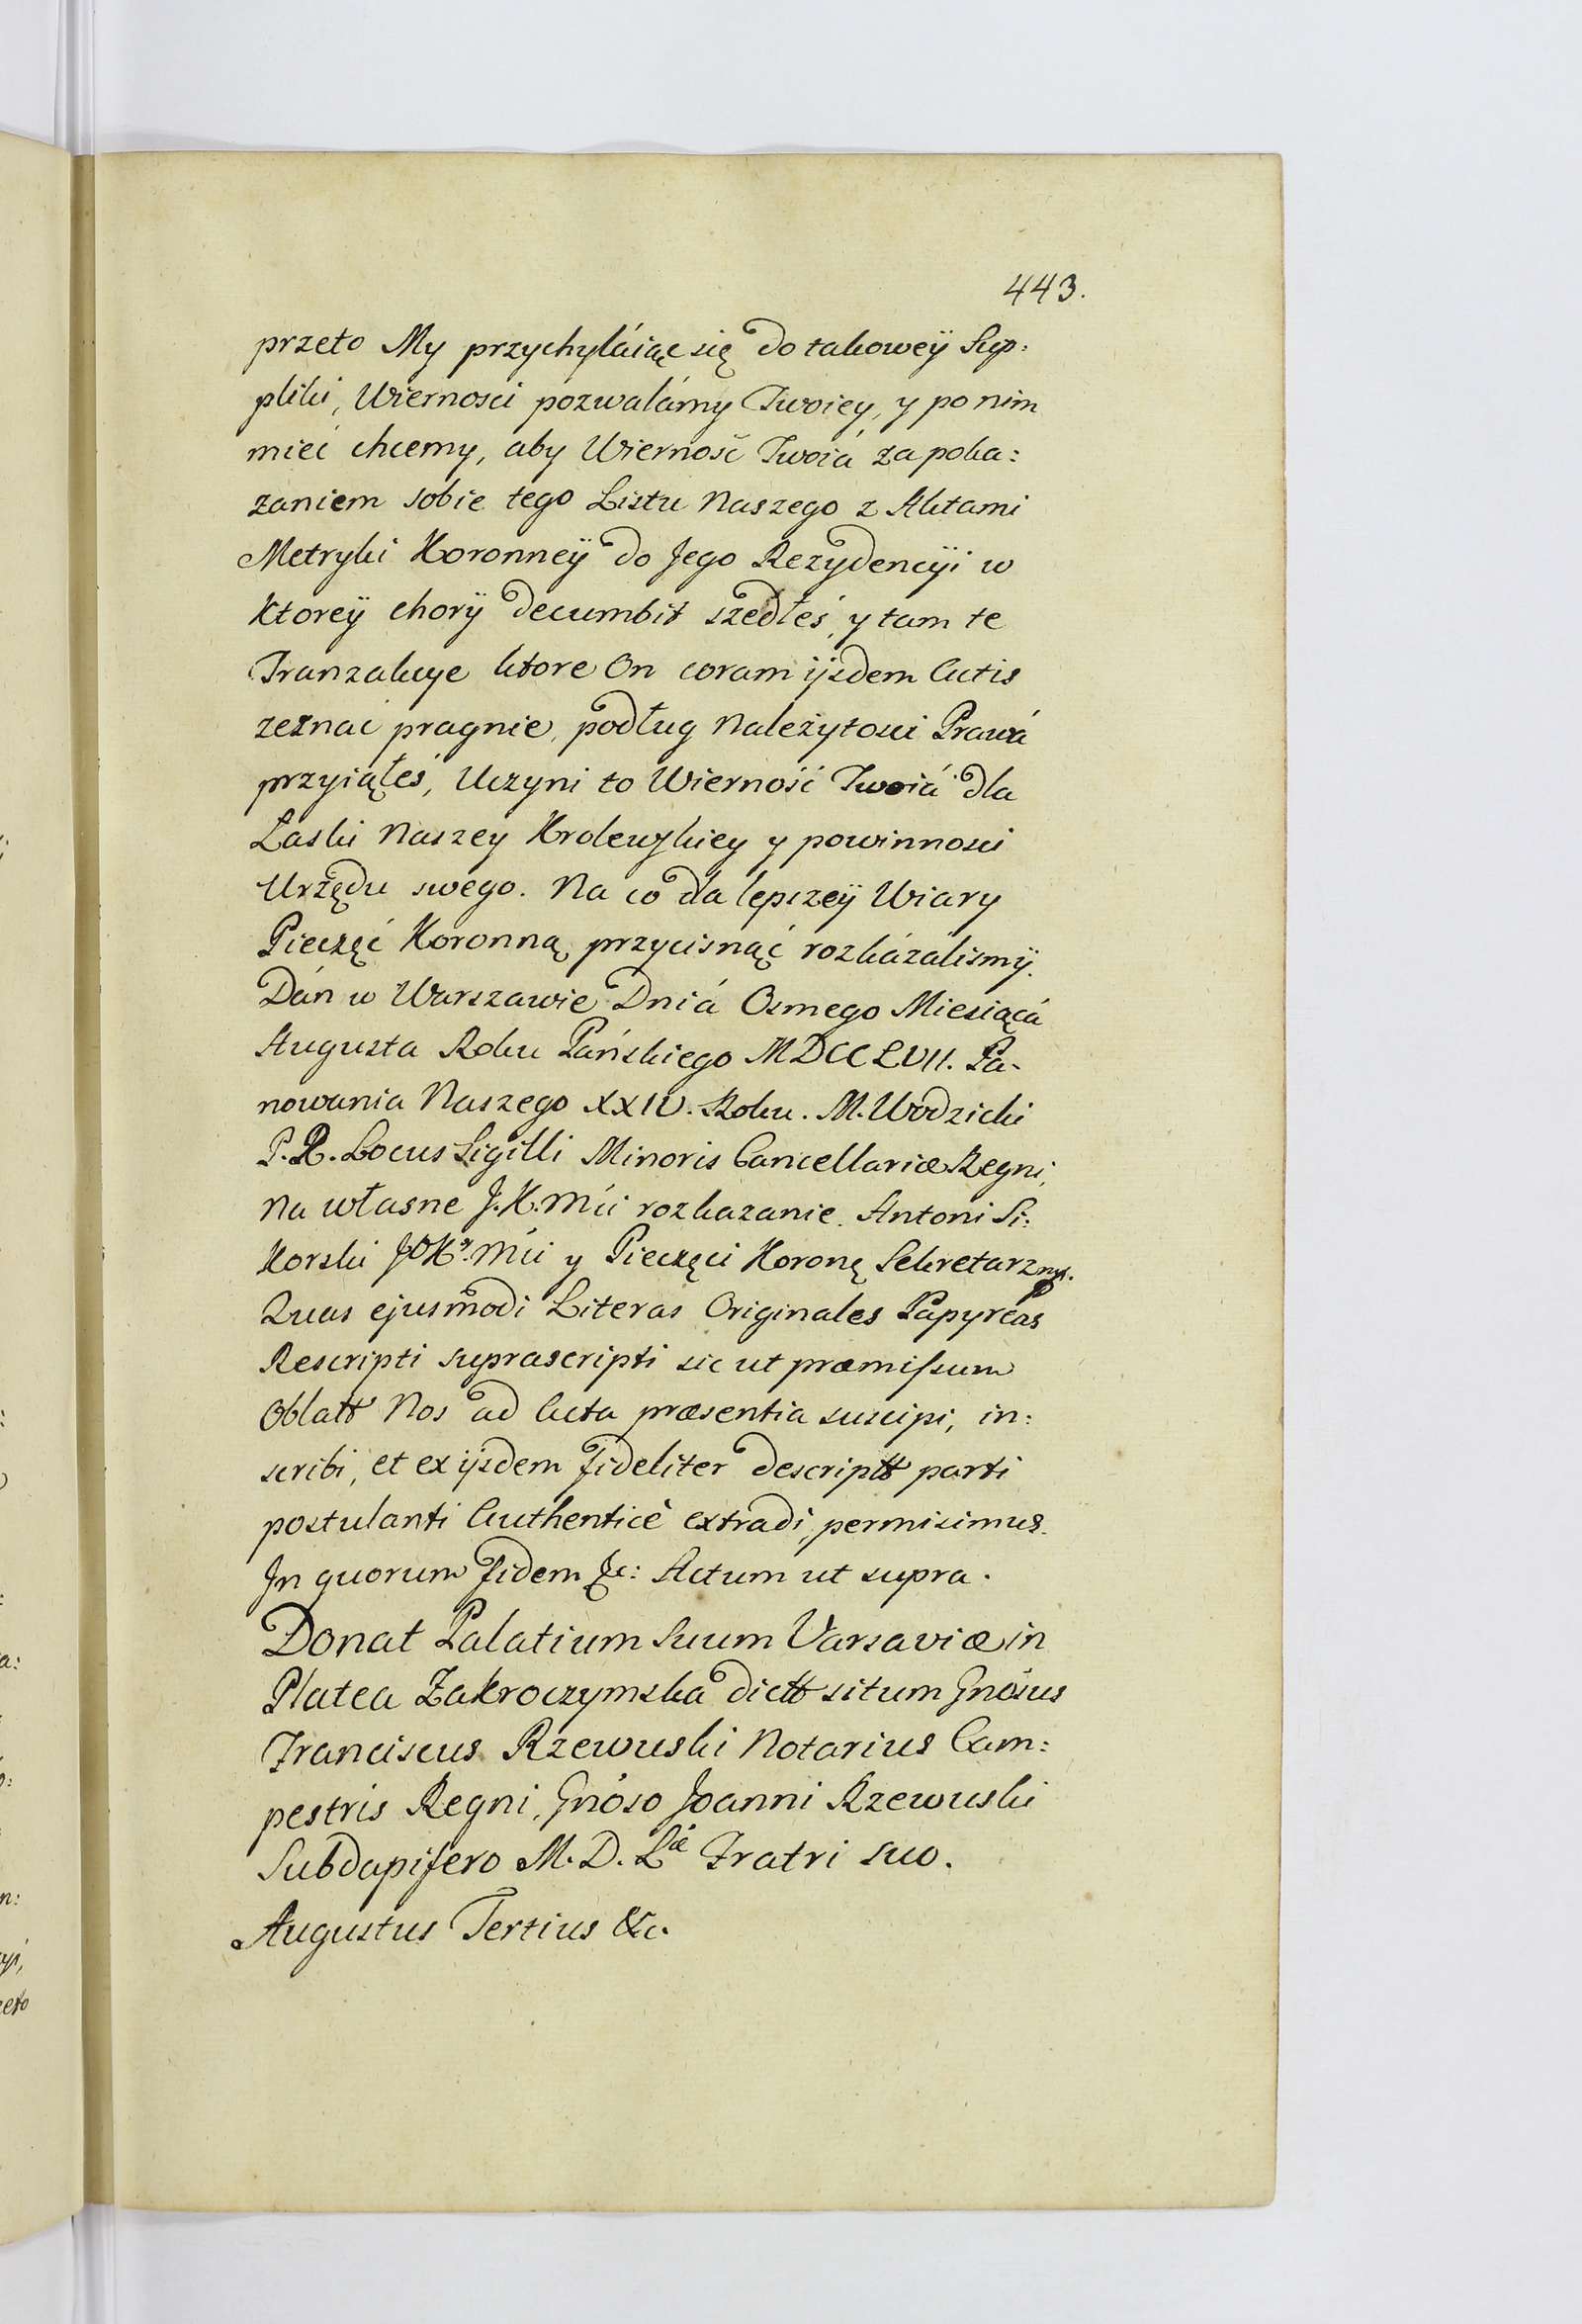 443.
przeto My przychyláiąc się do takowey Sup:
pliki, Wiernosci pozwalámy Twoiey, y po nim
mieć chcemy, aby Wierność Twoiá za poka:
zaniem sobie tego Listu Naszego z Aktami
Metryki Koronneÿ do Jego Rezydencÿi w
Ktoreÿ chorÿ decumbit szedłeś, y tam te
Tranzakcye ktore On coram ijsdem Actis
zeznać pragnie, podług Należytosci Prawá
przyiąłeś, Uczyni to Wierność Twoiá dla
Laski Naszey Krolewskiey y powinnosci
Urzędu swego. Na co dla lepszeÿ Wiary
Pieczęć Koronną przycisnąć rozkázálismÿ.
Dán w Warszawie Dniá Osmego Miesiącá
Augusta Roku Pańskiego MDCCLVII. Pa-
nowania Naszego XXIV. Roku. M. Wodzicki
P. R. Locus Sigilli Minoris Cancellariæ Regni,
Na własne J. K. Mći rozkazanie. Antoni Si:
Korski JOKr. Mći y Pieczęci Koroną Sekretarz mp.
Quas ejusmodi Literas Originales Papyreas
Rescripti suprascripti sic ut præmissum
Oblatt Nos ad Acta præsentia suscipi, in:
scribi, et ex ijsdem fideliter descriptt parti
postulanti Authenticè extradi, permisimus.
Jn quorum fidem &c: Actum ut supra.
Donat Palatium Suum Varsaviæ in
Platea Zakroczymska dictt situm Gnósus
Franciscus Rzewuski Notarius Cam:
pestris Regni, Gnóso Joanni Rzewuski
Subdapifero M. D. Læ Fratri suo.
Augustus Tertius &c.